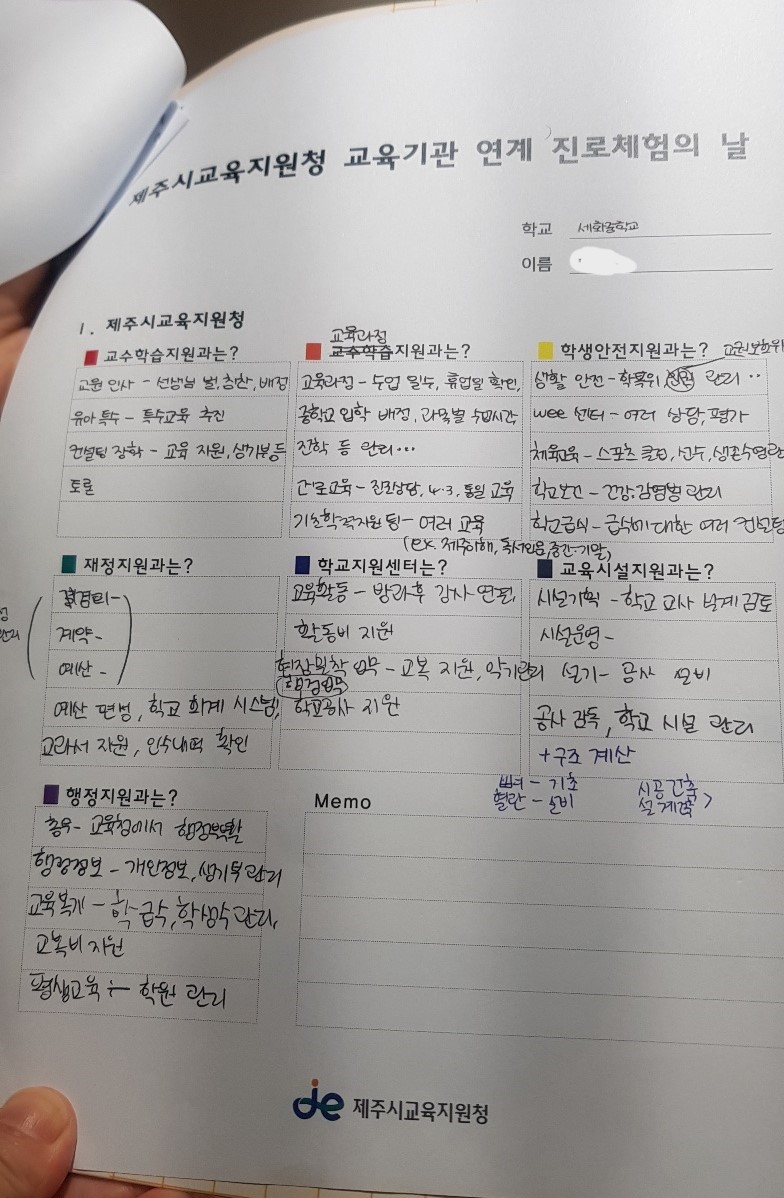 제주시교육지원청 교육기관 연계 진로체험의 날
학교 세화중학교
이름
1. 제주시교육지원청
교수학습지원과는?
교원 인사 - 선생님 벌, 칭찬, 배정
유아 특수 - 특수교육 추진
컨설팅 장학 - 교육 지원, 생기부 등
토론
교육과정
교수학습지원과는?
교육과정 - 수업 일수, 휴업일 확인,
중학교 입학 배정, 과목별 수업시간
진학 등 관리...
진로교육 - 진로상담, 4·3, 통일 교육
기초학력지원 팀 - 여러 교육
(ex. 제주이해, 독서인문, 중간·기말)
학생안전지원과는? 교권보호위
생활 안전 - 학폭위, 관리..
wee 센터 - 여러 상담, 평가
체육교육 - 스포츠 클럽, 선수, 생존수영
학교보건 - 건강, 감염병 관리
학교급식 - 급식에 대한 여러 컨설팅
재정지원과는?
계약 -
예산 -
예산 편성, 학교 회계 시스템,
교과서 지원, 인수내역 확인
학교지원센터는?
교육활동 - 방과후 강사 연필,
활동비 지원
현장밀착 업무 - 교복 지원, 악기관리
행정업무
학교공사 지원
교육시설지원과는?
시설기획 - 학교 교사 설계 검토
시설운영 -
설기 - 공사 설비
공사 감독, 학교 시설 관리
+ 구조 계산
뼈 - 기초
혈관 - 설비
시공 건축
설계 건축 >
행정지원과는?
총무 - 교육청에서 행정역할
행정정보 - 개인정보, 생기부 관리
교육복지 - 학급수, 학생수 관리,
교복비 지원
평생교육 - 학원 관리
Memo
je 제주시교육지원청